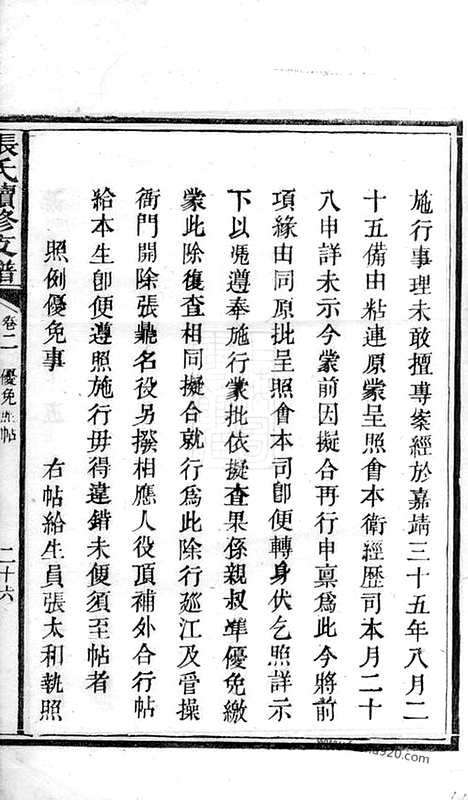 施行事理未敢擅專案經於嘉靖三十五年八月二
十五備由粘連原蒙呈照會本衛經歷司本月二十
八申詳未示今蒙前因擬合再行申稟爲此今將前
項緣由同原批呈照會本司卽便轉身伏乞照詳示
下以凴遵奉施行蒙批依擬查果係親叔準優免繳
蒙此除復查相同擬合就行爲此除行廵江及管操
衙門開除張鼎名役另撥相應人役頂補外合行帖
給本生卽便遵照施行毋得違錯未便須至帖者
照例優免事　　右帖給生員張太和執照
張氏續修支譜　卷二　優免照帖　二十六